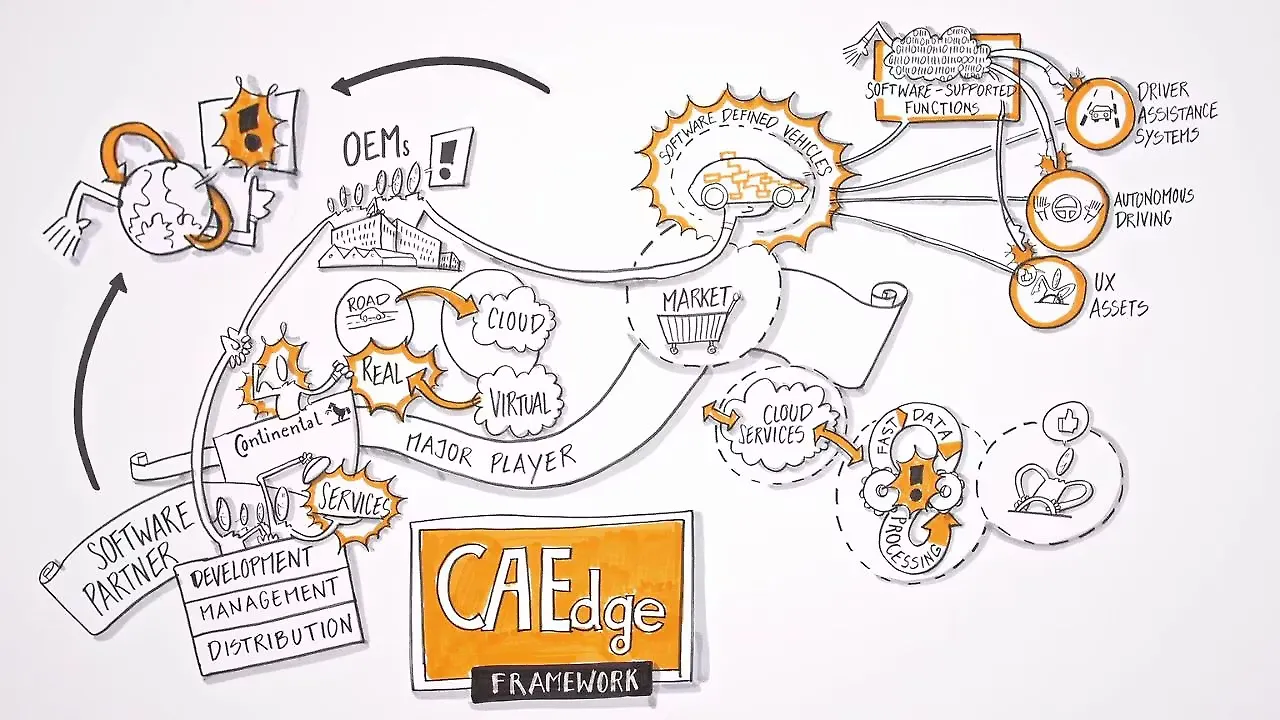 SOFTWARE-SUPPORTED
FUNCTIONS
DRIVER
ASSISTANCE
SYSTEMS
AUTONOMOUS
DRIVING
UX
ASSETS
SOFTWARE DEFINED VEHICLES
OEMs
!
!
ROAD
CLOUD
REAL
VIRTUAL
MARKET
Continental
MAJOR PLAYER
CLOUD
SERVICES
FAST DATA
!
PROCESSING
SERVICES
SOFTWARE
PARTNER
DEVELOPMENT
MANAGEMENT
DISTRIBUTION
CAEdge
FRAMEWORK